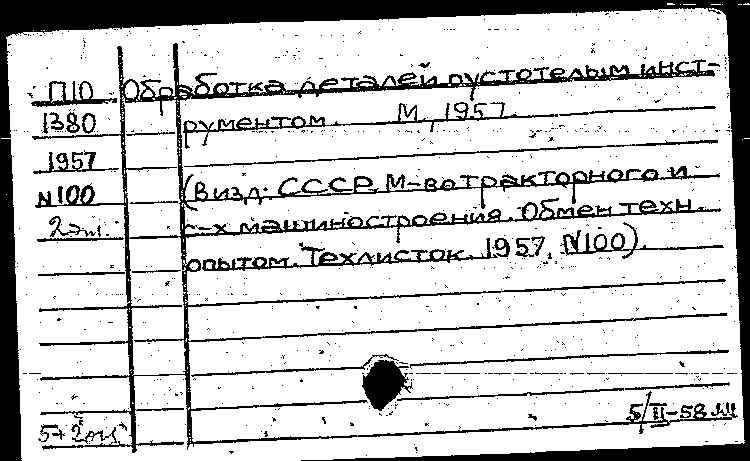 П10 Обработка деталей пустотелым инст-
1380 рументом. М., 1957.
1957
N100 (В изд: СССР. М-во тракторного и
2 эк. с-х машиностроения. Обмен техн.
опытом. Техлисток. 1957, N100).
5/II-58